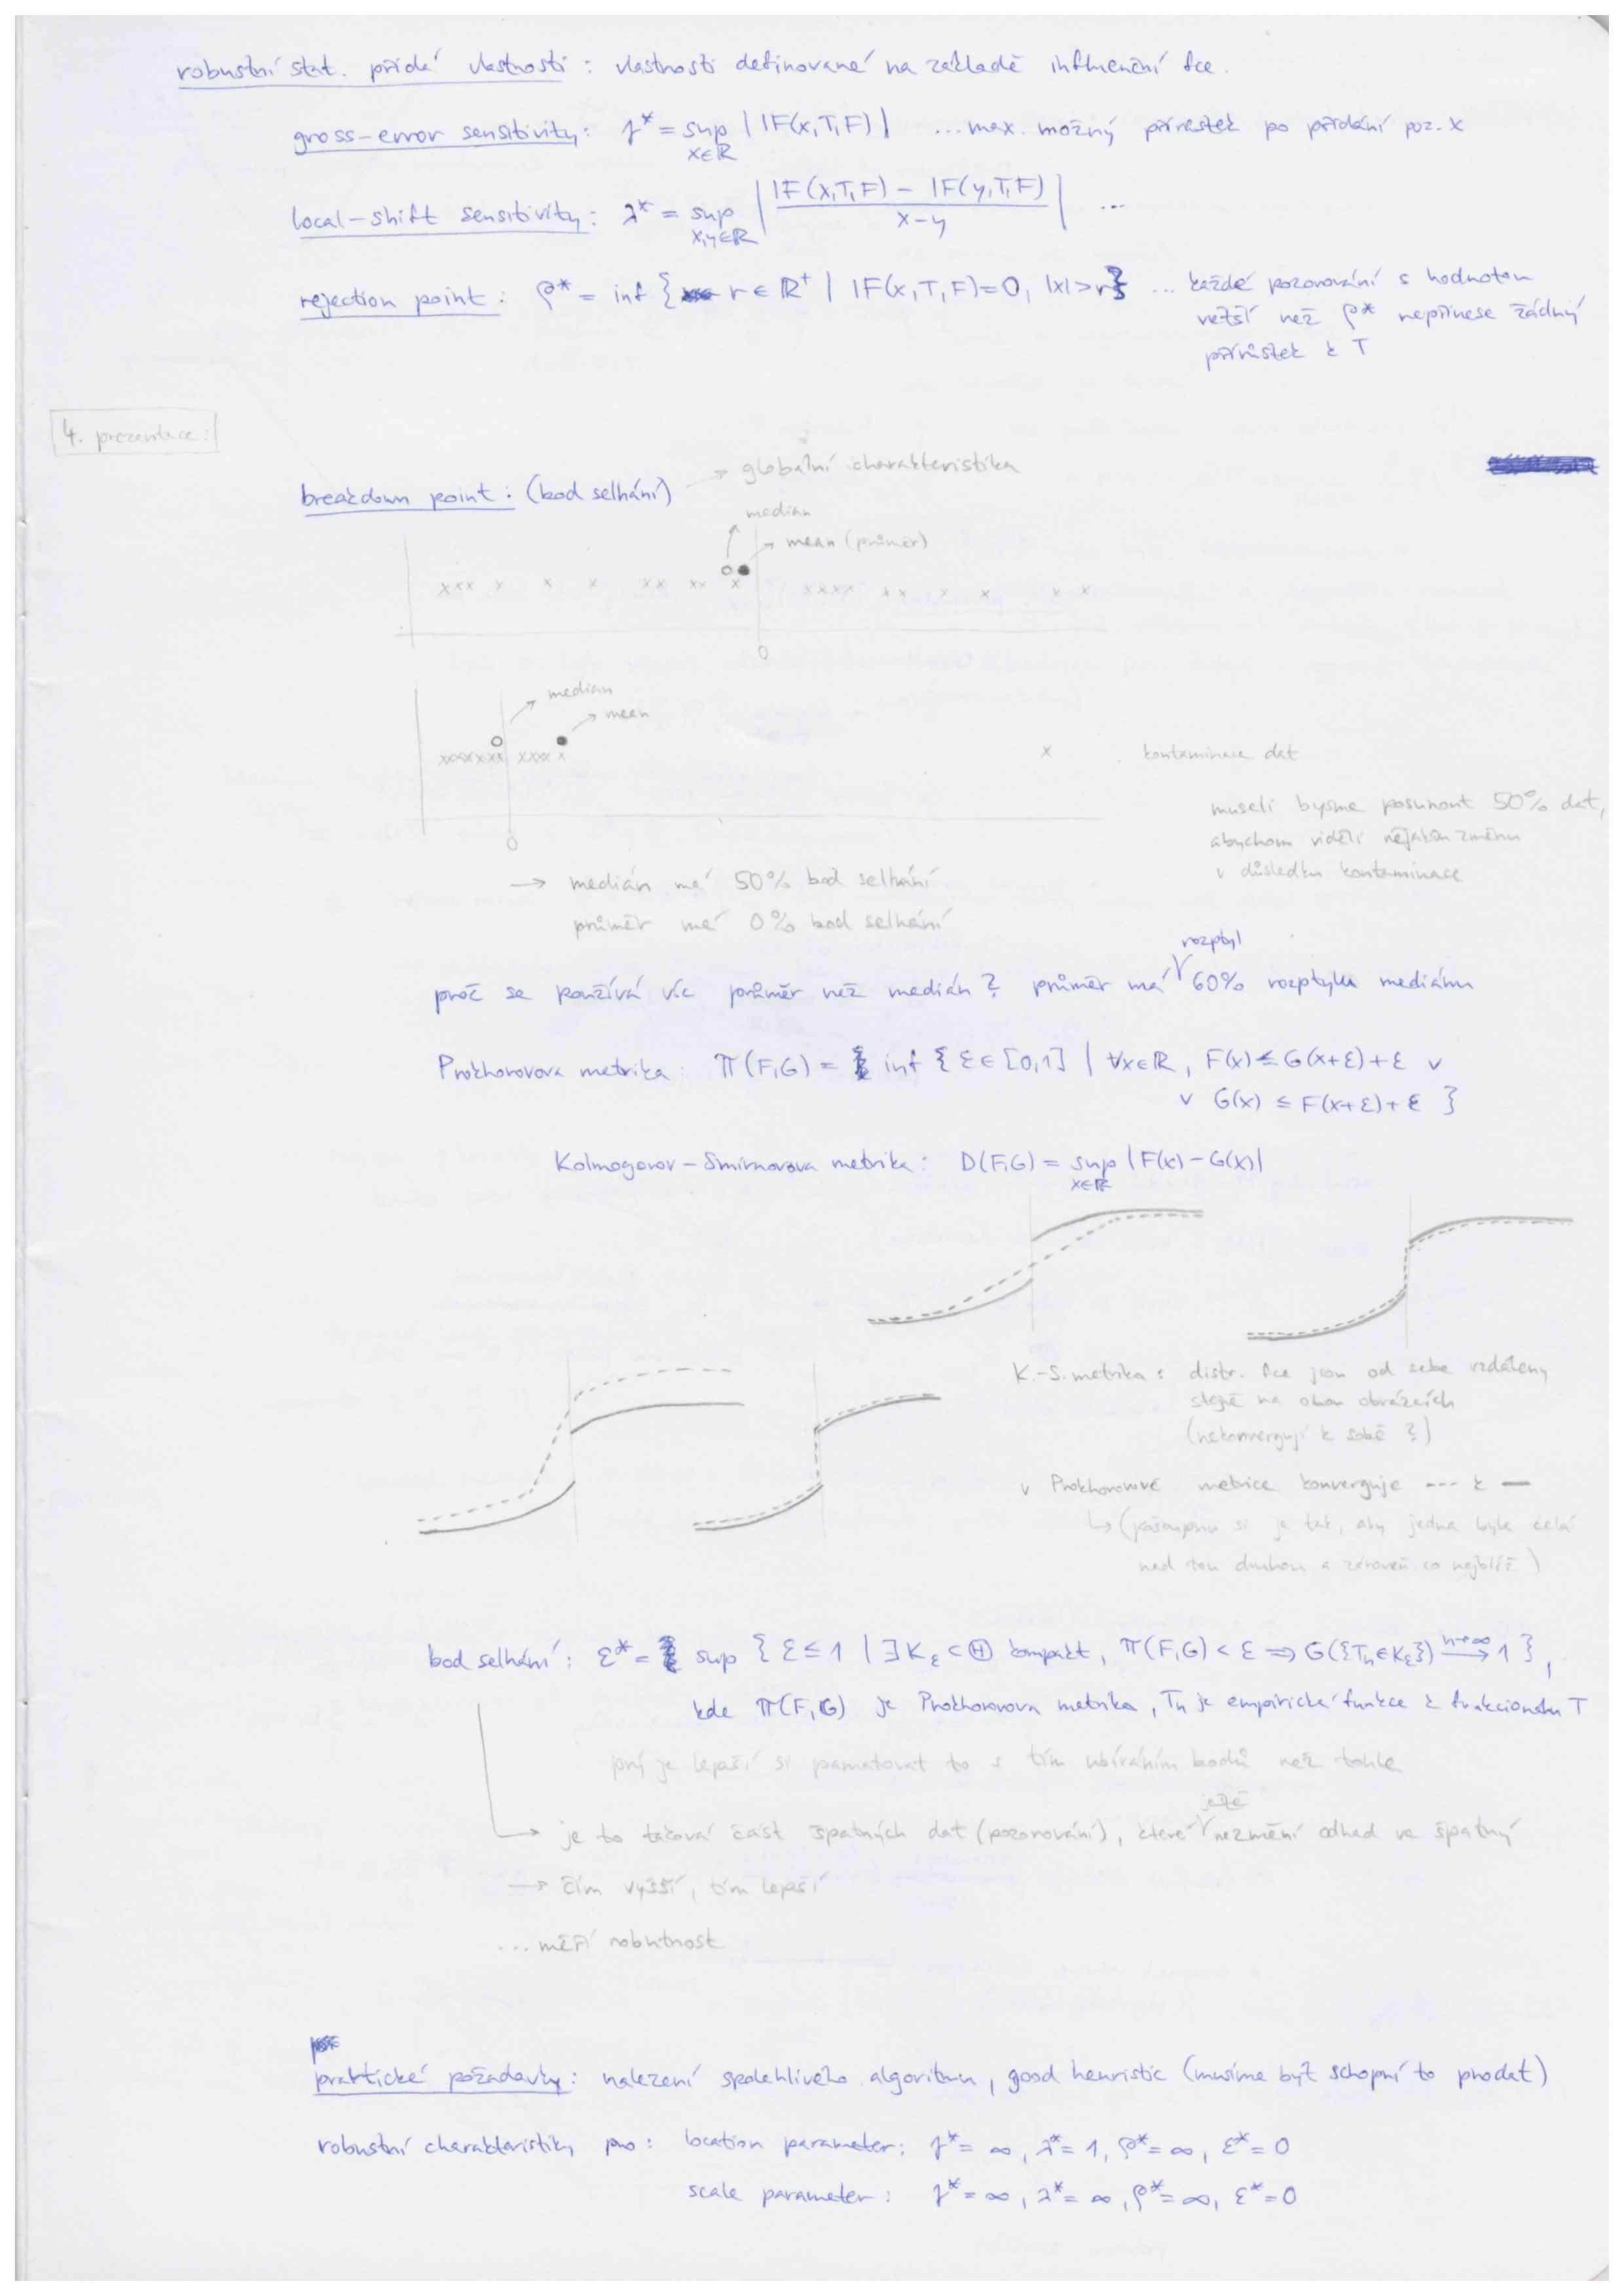 robustní stat. přidá vlastnosti : vlastnosti definované na základě influenční fce.
gross-error sensitivity: γ* = sup |IF(x,T,F)| ... max. možný přírůstek po přidání poz. x
x∈ℝ
local-shift sensitivity: λ* = sup | IF(x,T,F) − IF(y,T,F) / x−y | ...
x,y∈ℝ
rejection point: ρ* = inf { r ∈ ℝ⁺ | IF(x,T,F)=0, |x|>r } ... každé pozorování s hodnotou
větší než ρ* nepřinese žádný
přírůstek k T
4. prezentace:
→ globální charakteristika
breakdown point: (bod selhání)
median
→ mean (průměr)
0
median
→ mean
x kontaminace dat
museli bysme posunout 50% dat,
abychom viděli nějakou změnu
v důsledku kontaminace
0
→ medián má 50% bod selhání
průměr má 0% bod selhání
rozptyl
proč se používá víc průměr než medián? průměr má 60% rozptylu mediánu
Prokhorova metrika: π(F,G) = inf { ε ∈ [0,1] | ∀x∈ℝ, F(x) ≤ G(x+ε)+ε ∨
∨ G(x) ≤ F(x+ε)+ε }
Kolmogorov–Smirnovova metrika: D(F,G) = sup |F(x)−G(x)|
x∈ℝ
K.-S. metrika: distr. fce jsou od sebe vzdáleny
stejně na obou obrázcích
(nekonvergují k sobě ?)
v Prokhorovově metrice konverguje --- k —
↳ (posunu si je tak, aby jedna byla celá
nad tou druhou a zároveň co nejblíž)
bod selhání: ε* = sup { ε ≤ 1 | ∃ K_ε ⊂ Θ kompakt, π(F,G) < ε ⇒ G({Tn∈K_ε}) →(n→∞) 1 },
kde π(F,G) je Prokhorovova metrika, Tn je empirická funkce k funkcionálu T
prý je lepší si pamatovat to s tím ubíráním bodů než tohle
ještě
→ je to taková část špatných dat (pozorování), které nezmění odhad ve špatný
→ čím vyšší, tím lepší
... měří robutnost
praktické požadavky: nalezení spolehlivého algoritmu, good heuristic (musíme být schopní to prodat)
robustní charakteristiky pro: location parameter: γ* = ∞, λ* = 1, ρ* = ∞, ε* = 0
scale parameter: γ* = ∞, λ* = ∞, ρ* = ∞, ε* = 0